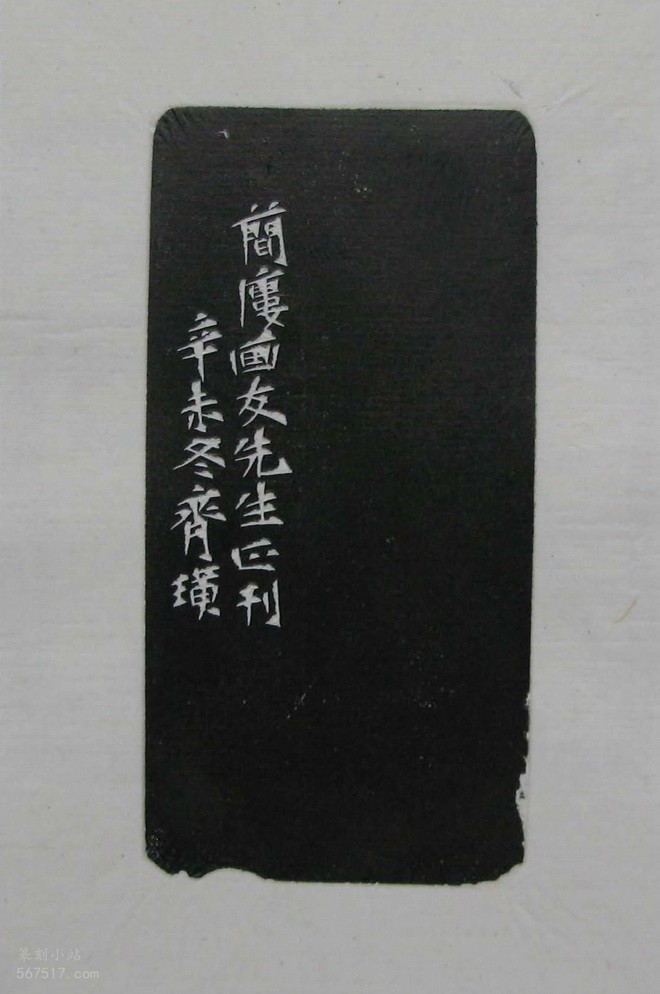 簡廔画友先生正刊
辛未冬齊璜
篆刻小站
567517.com